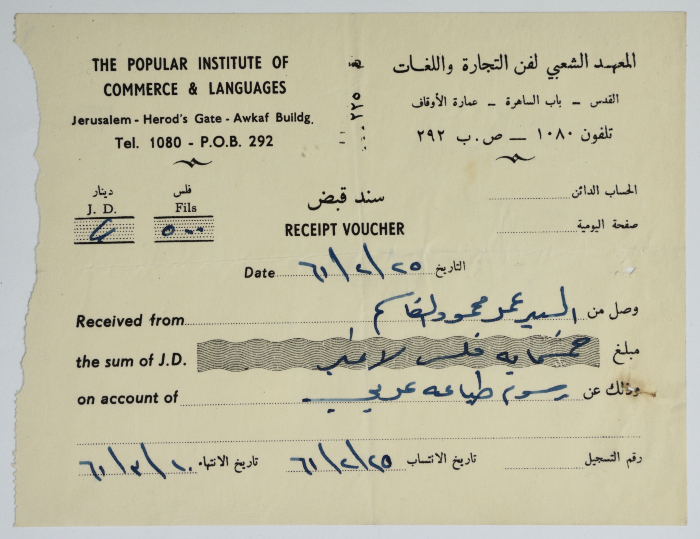 THE POPULAR INSTITUTE OF
COMMERCE & LANGUAGES
Jerusalem - Herod's Gate - Awkaf Buildg.
Tel. 1080 - P.O.B. 292
المعهد الشعبي لفن التجارة واللغات
القدس - باب الساهرة - عمارة الأوقاف
تلفون ١٠٨٠ - ص.ب ٢٩٢
٢٢٥
دينار
J. D.
فلس
Fils
٥٠٠
سند قبض
RECEIPT VOUCHER
الحساب الدائن
صفحة اليومية
Date ٦١/٢/٢٥ التاريخ
Received from السيد عمر محمود القاسم وصل من
the sum of J.D. خمسمايه فلس لا غير مبلغ
on account of رسوم طباعه عربي وذلك عن
رقم التسجيل
تاريخ الانتساب ٦١/٢/٢٥
تاريخ الانتهاء